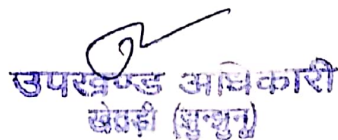 उपखण्ड अधिकारी
खेतड़ी (झुन्झुनू)